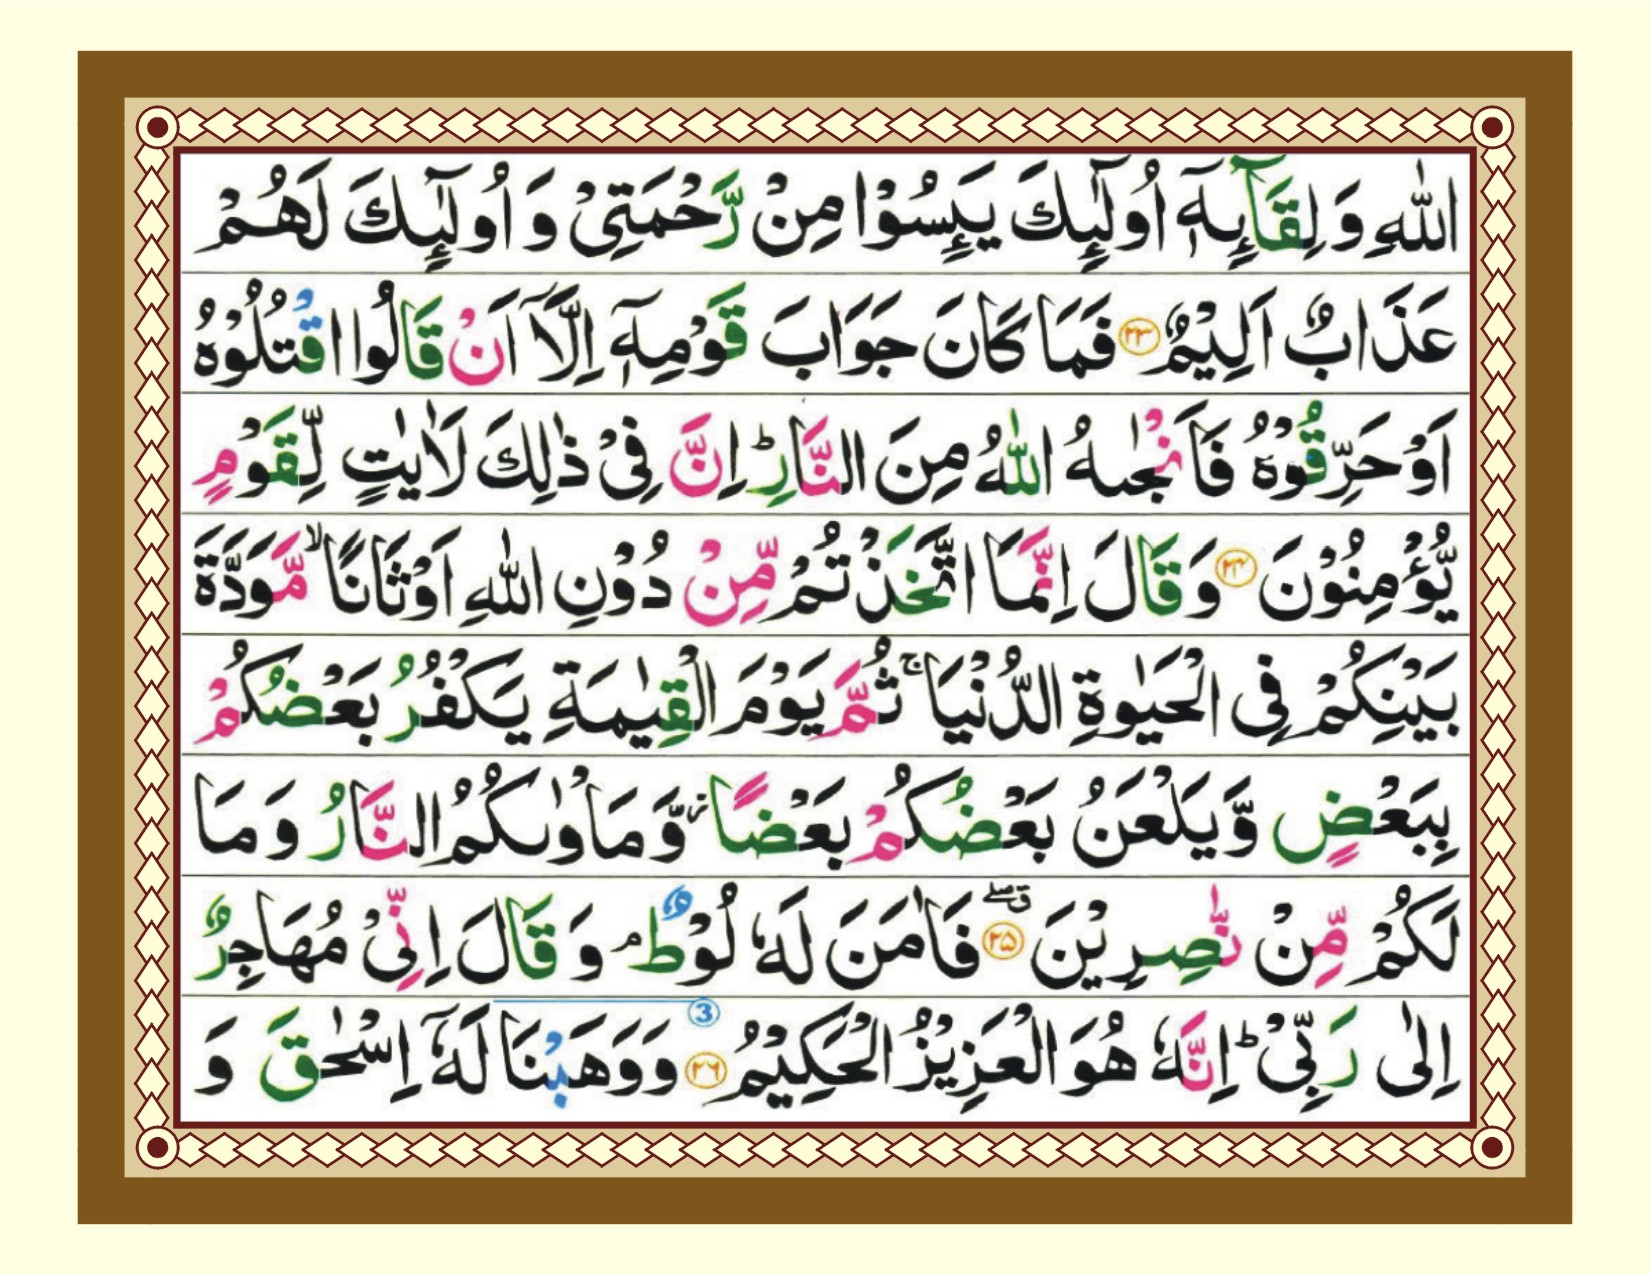 اللّٰهِ وَ لِقَآئِهٖۤ اُولٰٓئِكَ يَئِسُوْا مِنْ رَّحْمَتِيْ وَ اُولٰٓئِكَ لَهُمْ
عَذَابٌ اَلِيْمٌ ﴿۲۳﴾ فَمَا كَانَ جَوَابَ قَوْمِهٖۤ اِلَّاۤ اَنْ قَالُوا اقْتُلُوْهُ
اَوْ حَرِّقُوْهُ فَاَنْجٰىهُ اللّٰهُ مِنَ النَّارِ ؕ اِنَّ فِيْ ذٰلِكَ لَاٰيٰتٍ لِّقَوْمٍ
يُّؤْمِنُوْنَ ﴿۲۴﴾ وَ قَالَ اِنَّمَا اتَّخَذْتُمْ مِّنْ دُوْنِ اللّٰهِ اَوْثَانًا ۙ مَّوَدَّةَ
بَيْنِكُمْ فِي الْحَيٰوةِ الدُّنْيَا ۚ ثُمَّ يَوْمَ الْقِيٰمَةِ يَكْفُرُ بَعْضُكُمْ
بِبَعْضٍ وَّيَلْعَنُ بَعْضُكُمْ بَعْضًا ؗ وَّمَاْوٰىكُمُ النَّارُ وَ مَا
لَكُمْ مِّنْ نّٰصِرِيْنَ ﴿۲۵﴾ ق صلے فَاٰمَنَ لَهٗ لُوْطٌ ۘ وَ قَالَ اِنِّيْ مُهَاجِرٌ
اِلٰى رَبِّيْ ؕ اِنَّهٗ هُوَ الْعَزِيْزُ الْحَكِيْمُ ﴿۲۶﴾ 3 وَ وَهَبْنَا لَهٗۤ اِسْحٰقَ وَ